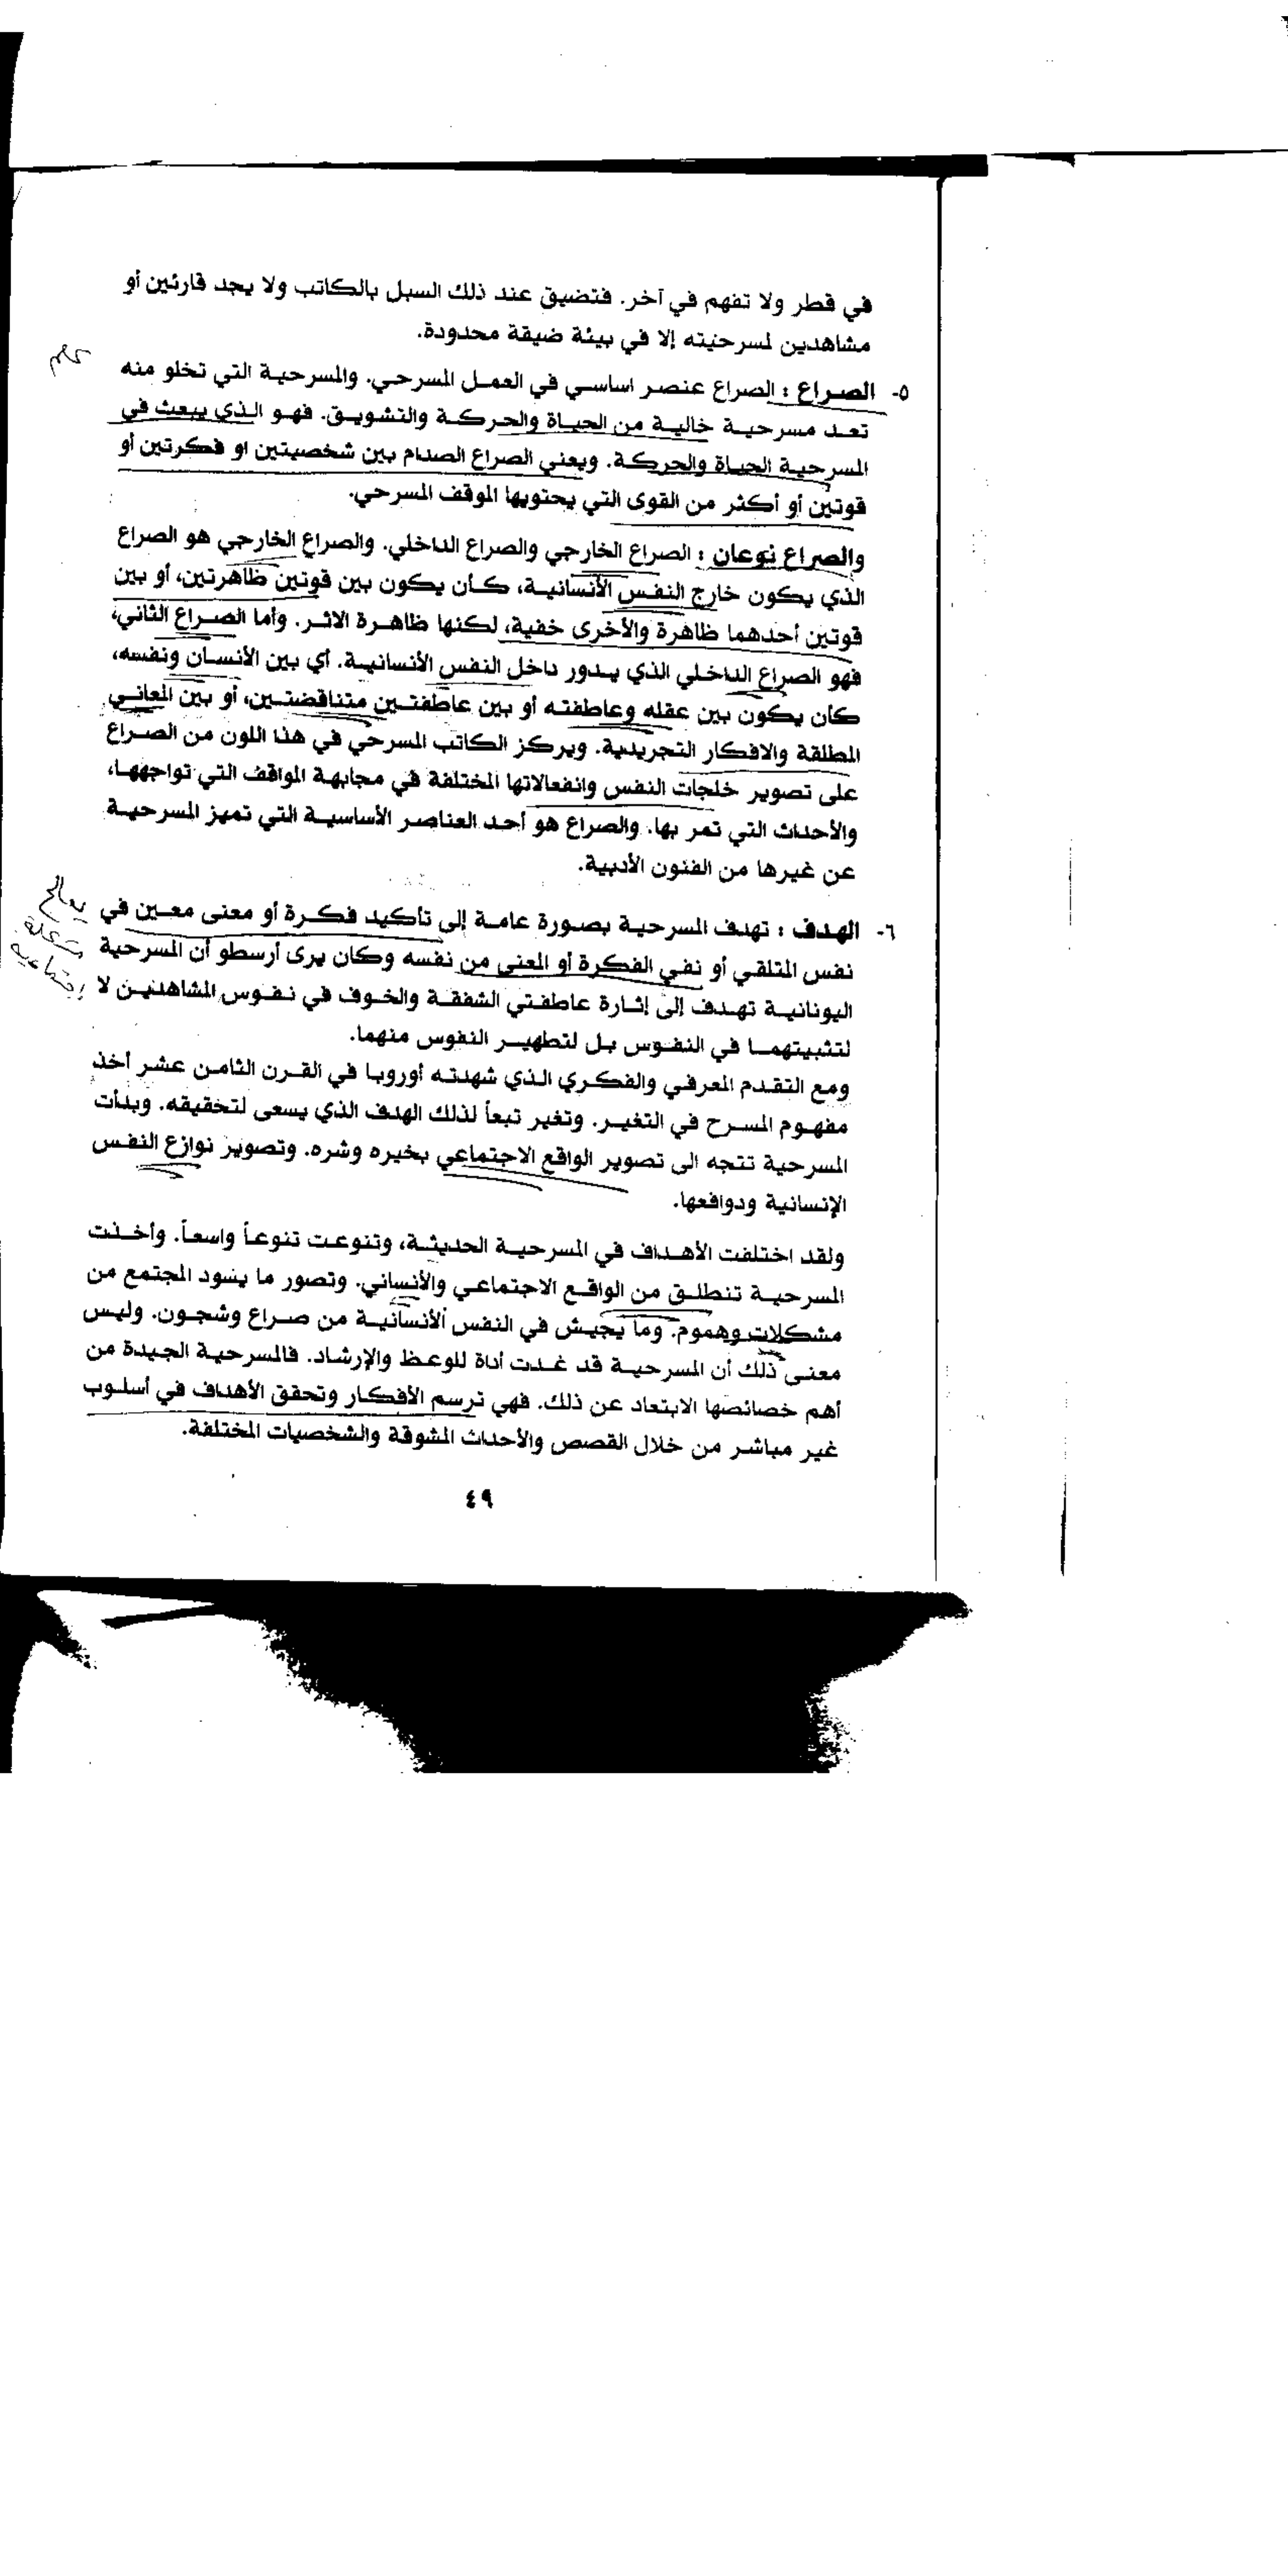 في قطر ولا تفهم في آخر. فتضيق عند ذلك السبل بالكاتب ولا يجد قارئين أو
مشاهدين لمسرحيته إلا في بيئة ضيقة محدودة.
٥- الصراع : الصراع عنصر اساسي في العمل المسرحي. والمسرحية التي تخلو منه
مهم
تعد مسرحية خالية من الحياة والحركة والتشويق. فهو الذي يبعث في
المسرحية الحياة والحركة. ويعني الصراع الصدام بين شخصيتين او فكرتين أو
قوتين أو أكثر من القوى التي يحتويها الموقف المسرحي.
والصراع نوعان : الصراع الخارجي والصراع الداخلي. والصراع الخارجي هو الصراع
الذي يكون خارج النفس الأنسانية، كأن يكون بين قوتين ظاهرتين، أو بين
قوتين أحدهما ظاهرة والأخرى خفية، لكنها ظاهرة الاثر. وأما الصراع الثاني،
فهو الصراع الداخلي الذي يدور داخل النفس الأنسانية. أي بين الأنسان ونفسه،
كأن يكون بين عقله وعاطفته أو بين عاطفتين متناقضتين، أو بين المعاني
المطلقة والافكار التجريدية. ويركز الكاتب المسرحي في هذا اللون من الصراع
على تصوير خلجات النفس وانفعالاتها المختلفة في مجابهة المواقف التي تواجهها،
والأحداث التي تمر بها. والصراع هو أحد العناصر الأساسية التي تميز المسرحية
عن غيرها من الفنون الأدبية.
٦- الهدف : تهدف المسرحية بصورة عامة إلى تأكيد فكرة أو معنى معين في
يعالج
مشكلة
إجتماعية
نفس المتلقي أو نفي الفكرة أو المعنى من نفسه وكان يرى أرسطو أن المسرحية
اليونانية تهدف إلى إثارة عاطفتي الشفقة والخوف في نفوس المشاهدين لا
لتثبيتهما في النفوس بل لتطهير النفوس منهما.
ومع التقدم المعرفي والفكري الذي شهدته أوروبا في القرن الثامن عشر أخذ
مفهوم المسرح في التغير. وتغير تبعاً لذلك الهدف الذي يسعى لتحقيقه. وبدأت
المسرحية تتجه الى تصوير الواقع الاجتماعي بخيره وشره. وتصوير نوازع النفس
الإنسانية ودوافعها.
ولقد اختلفت الأهداف في المسرحية الحديثة، وتنوعت تنوعاً واسعاً. وأخذت
المسرحية تنطلق من الواقع الاجتماعي والأنساني. وتصور ما يسود المجتمع من
مشكلات وهموم. وما يجيش في النفس الأنسانية من صراع وشجون. وليس
معنى ذلك أن المسرحية قد غدت أداة للوعظ والإرشاد. فالمسرحية الجيدة من
أهم خصائصها الابتعاد عن ذلك. فهي ترسم الأفكار وتحقق الأهداف في أسلوب
غير مباشر من خلال القصص والأحداث المشوقة والشخصيات المختلفة.
٤٩